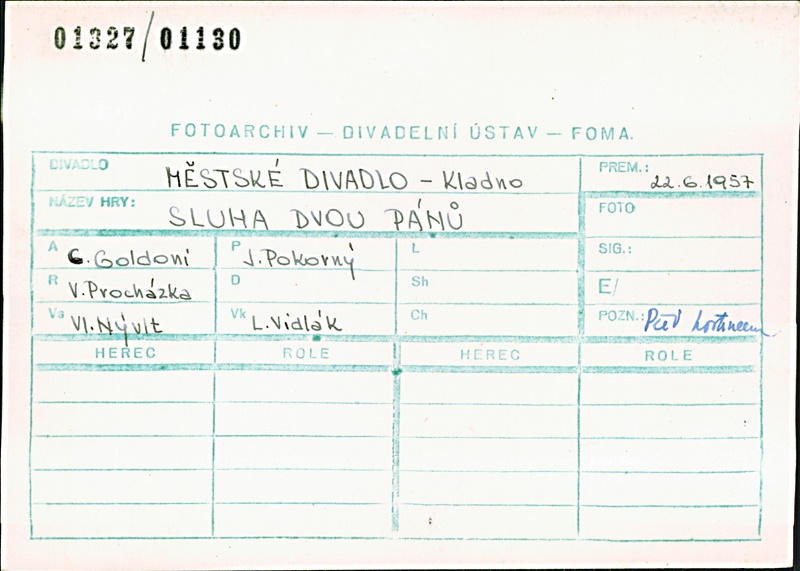 01327/01130
FOTOARCHIV — DIVADELNÍ ÚSTAV — FOMA.
DIVADLO MĚSTSKÉ DIVADLO - Kladno PREM.: 22.6.1957
NÁZEV HRY: SLUHA DVOU PÁNŮ FOTO
A C. Goldoni P J. Pokorný L SIG.:
R V. Procházka D Sh E/
Vs Vl. Nývlt Vk L. Vidlák Ch POZN.: Před
HEREC ROLE HEREC ROLE